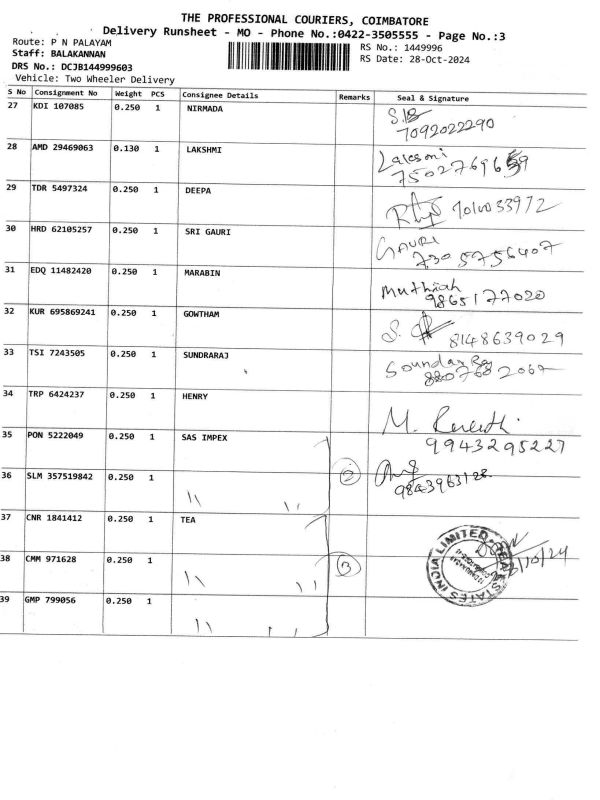 THE PROFESSIONAL COURIERS, COIMBATORE
Delivery Runsheet - MO - Phone No.:0422-3505555 - Page No.:3
Route: P N PALAYAM
Staff: BALAKANNAN
DRS No.: DCJB144999603
Vehicle: Two Wheeler Delivery
RS No.: 1449996
RS Date: 28-Oct-2024
S No Consignment No Weight PCS Consignee Details Remarks Seal & Signature
27 KDI 107085 0.250 1 NIRMADA
7092022290
28 AMD 29469063 0.130 1 LAKSHMI
29 TDR 5497324 0.250 1 DEEPA
30 HRD 62105257 0.250 1 SRI GAURI GAURI
7305756407
31 EDQ 11482420 0.250 1 MARABIN Muthiah
9865177020
32 KUR 695869241 0.250 1 GOWTHAM S.
8148639029
33 TSI 7243505 0.250 1 SUNDRARAJ
34 TRP 6424237 0.250 1 HENRY
M.
35 PON 5222049 0.250 1 SAS IMPEX 9943295227
36 SLM 357519842 0.250 1 2
9843963128
37 CNR 1841412 0.250 1 TEA
38 CMM 971628 0.250 1 3
39 GMP 799056 0.250 1